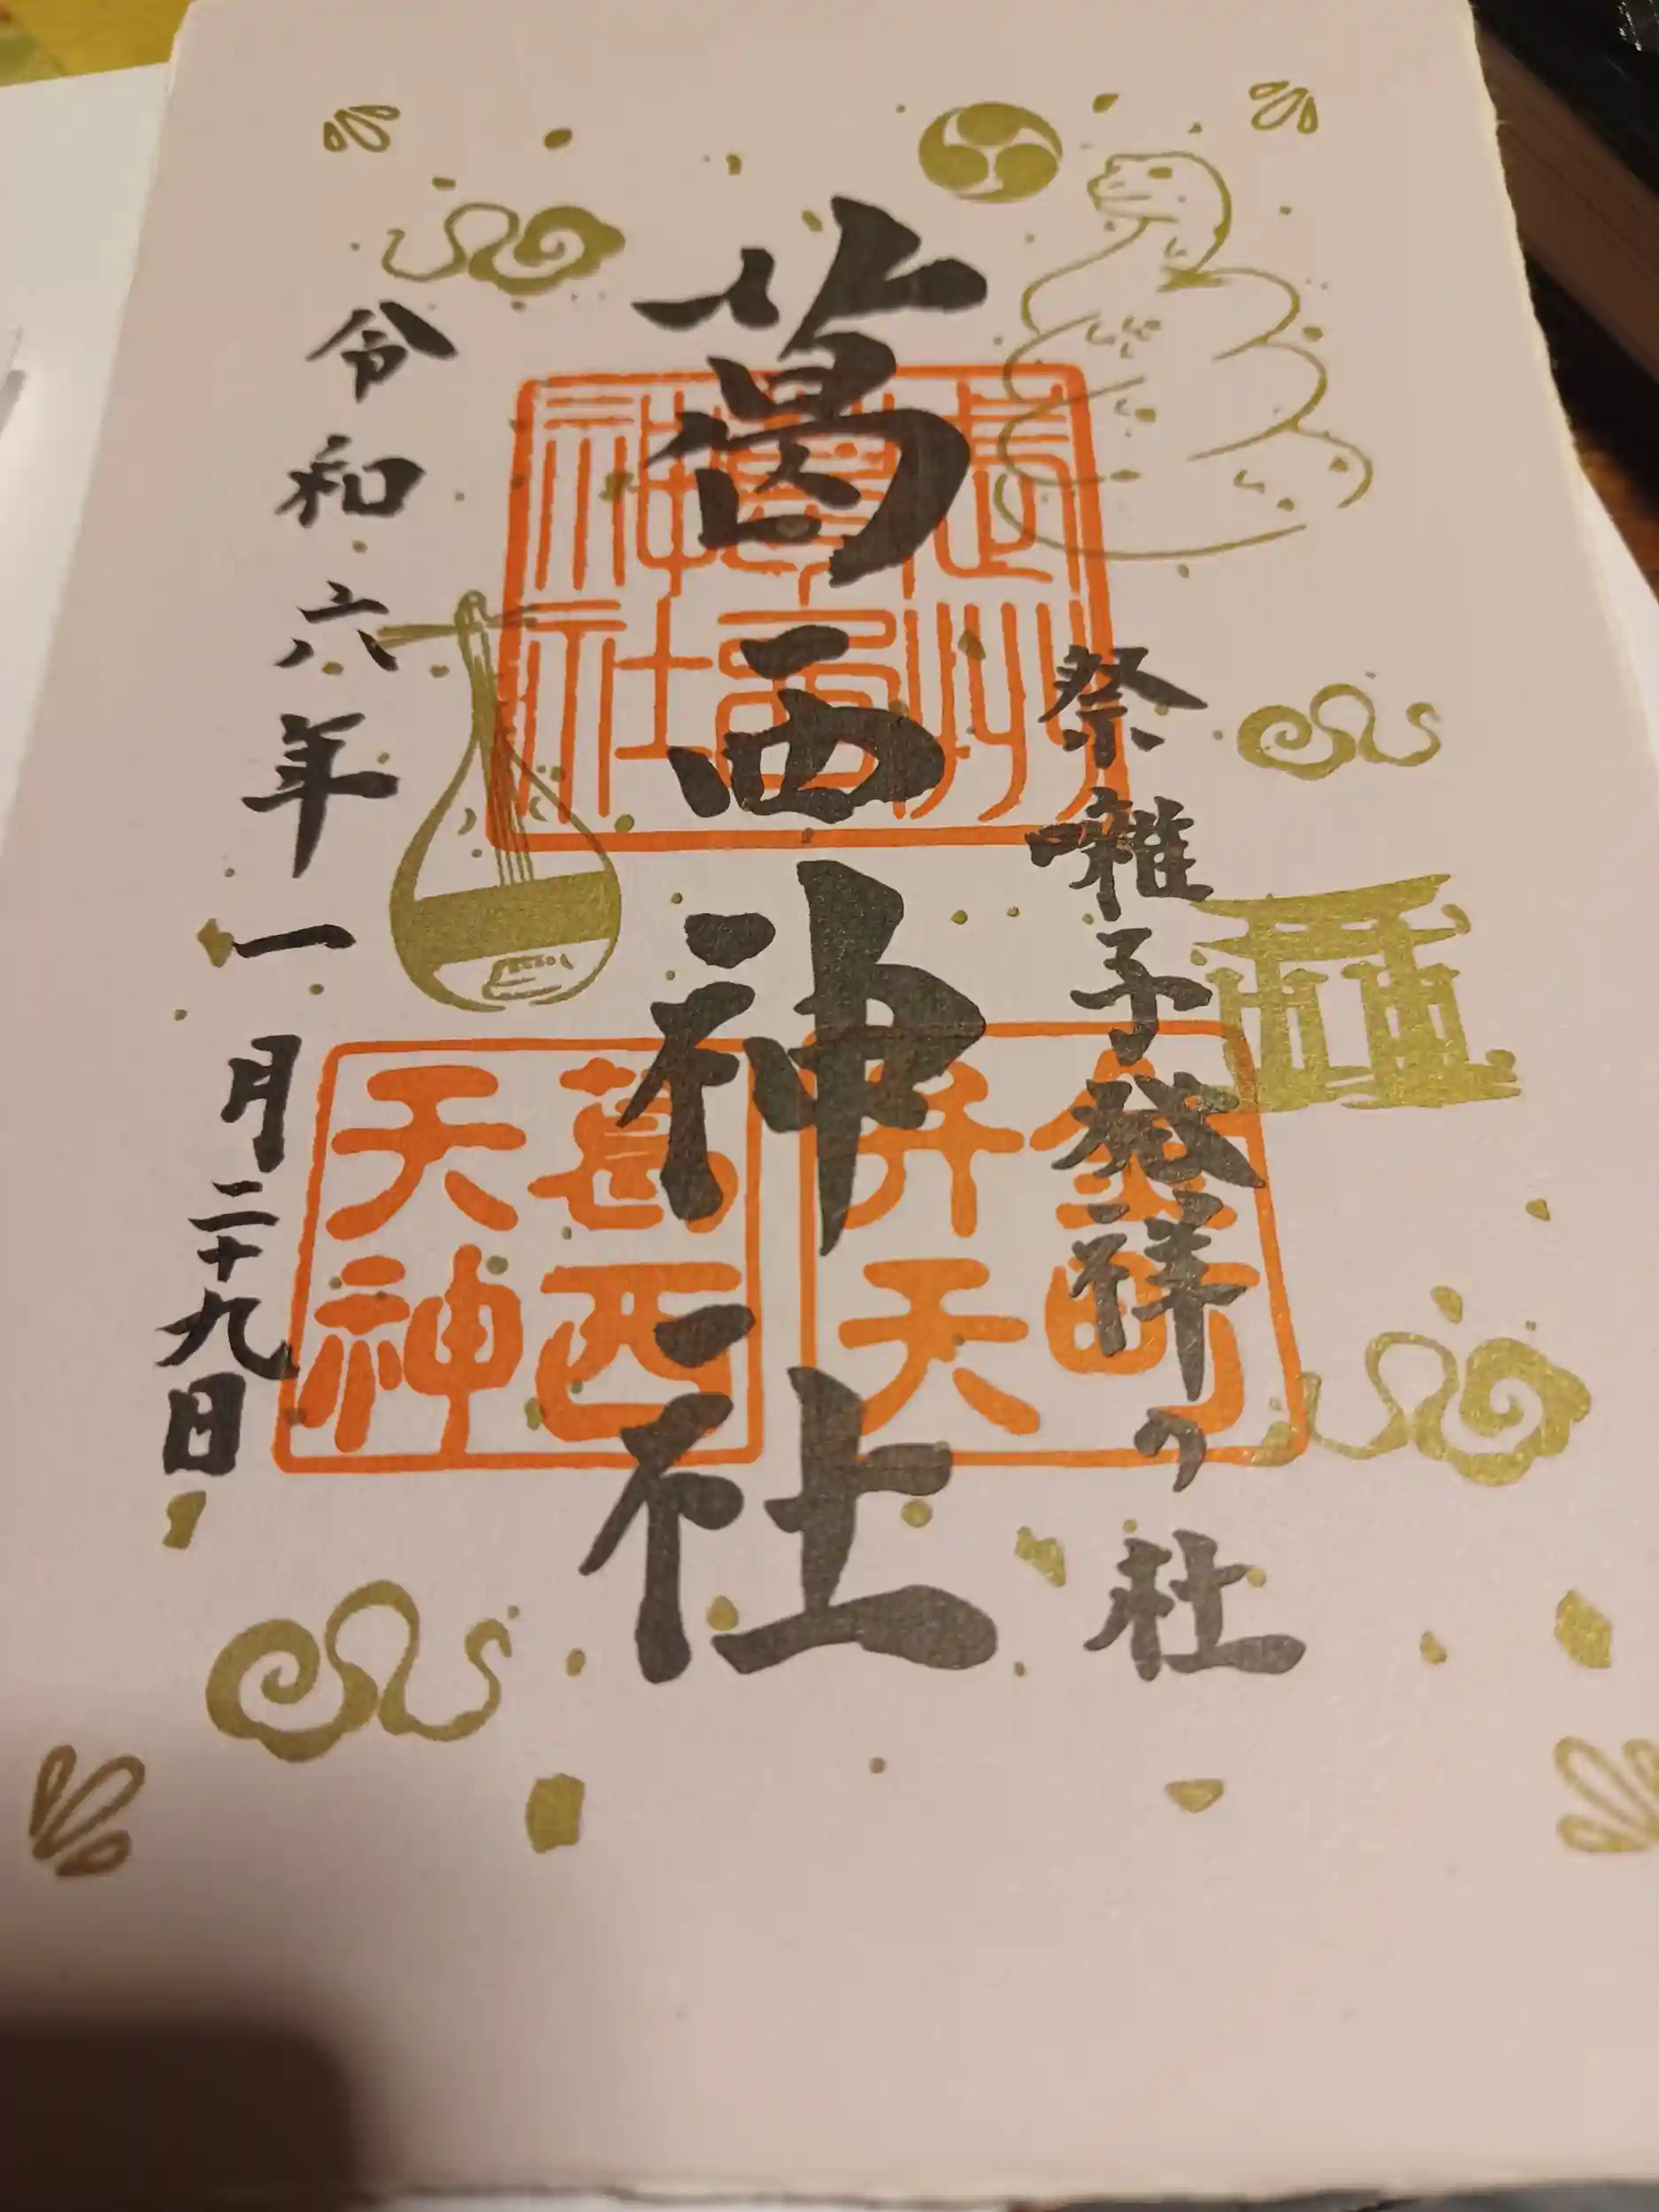 祭囃子発祥の社
葛西神社
令和六年一月二十九日
武州
葛西
神社
金町
弁天
葛西
天神